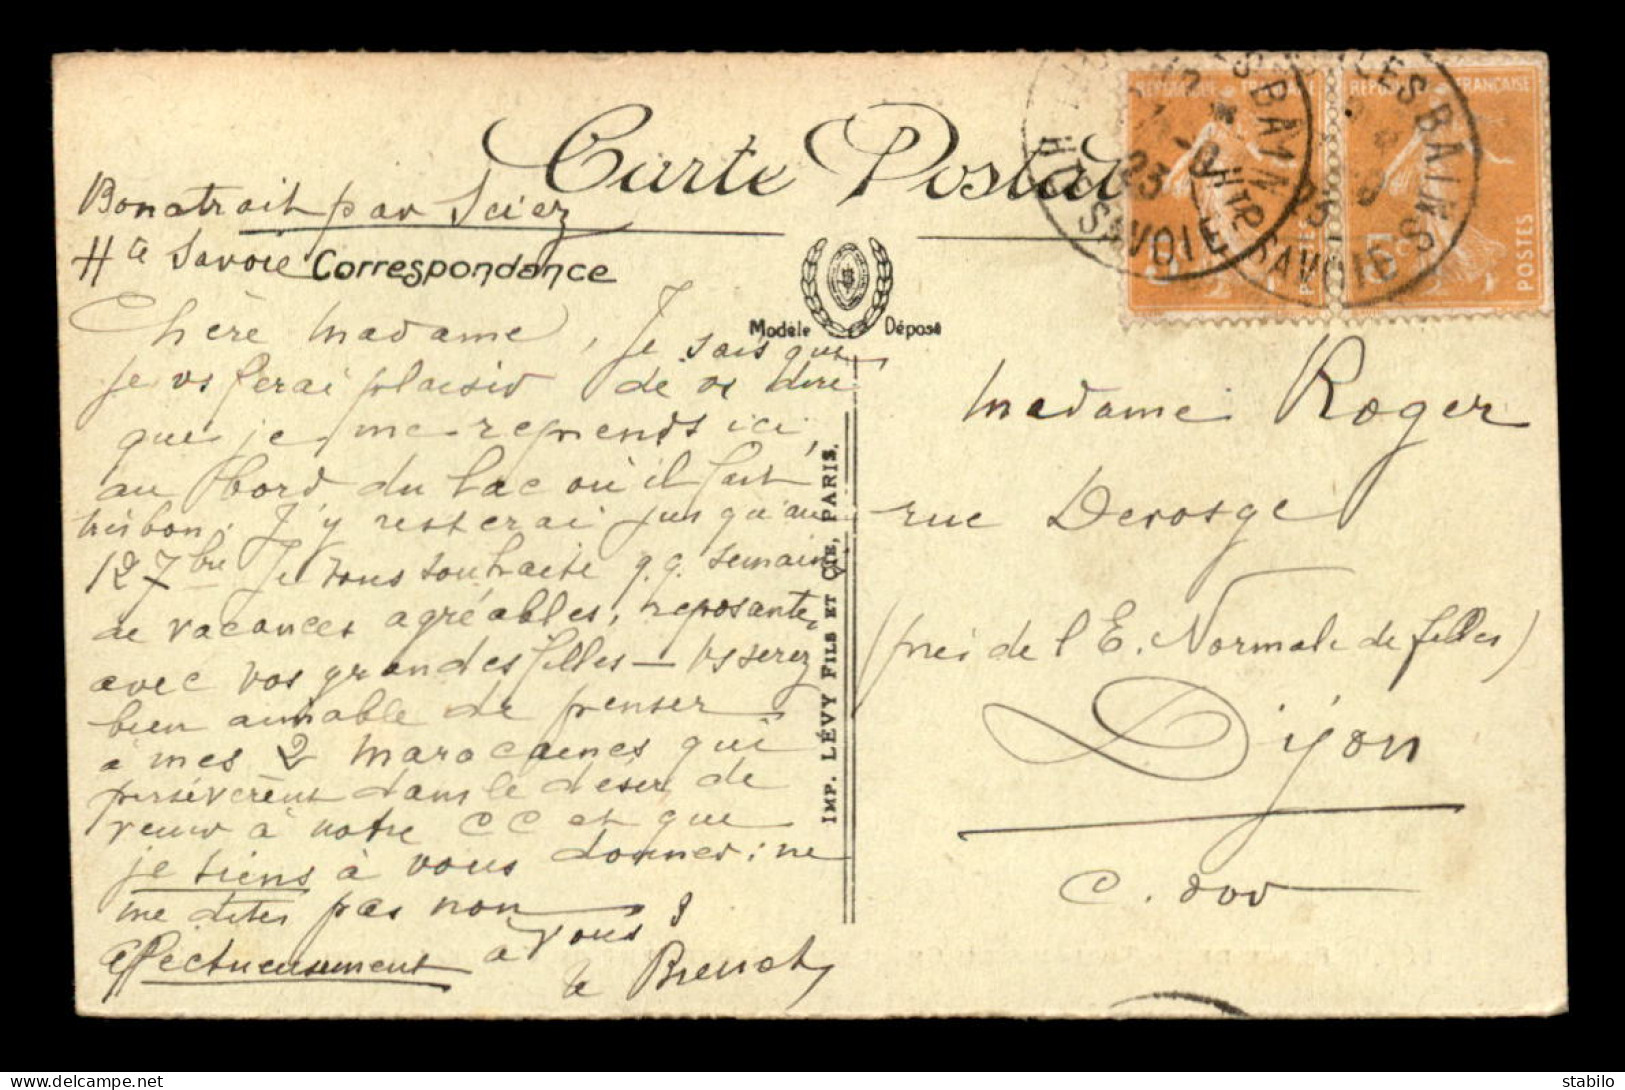 Carte Postale
Bonatrait par Sciez
Hte Savoie
Correspondance
Modèle Déposé
Chère Madame, Je sais que
je vs ferai plaisir de vs dire
que je me reprends ici,
au bord du lac où il fait
très bon. J'y resterai jusqu'au
12 7bre Je vous souhaite q.q. semaines
de vacances agréables, reposantes
avec vos grandes filles — Vs serez
bien aimable de penser
à mes 2 marocaines qui
persévèrent dans le désir de
venir à notre CC et que
je tiens à vous donner : ne
me dites pas non
Affectueusement à vous !
IMP. LÉVY FILS ET CIE, PARIS.
RÉPUBLIQUE FRANÇAISE
POSTES
LES BAINS
HTE SAVOIE
23
RÉPUBLIQUE FRANÇAISE
5c
POSTES
LES BAINS
HTE SAVOIE
Madame Roger
rue Devosge
(près de l'E. Normale de filles)
Dijon
C. d'or
stabilo
www.delcampe.net